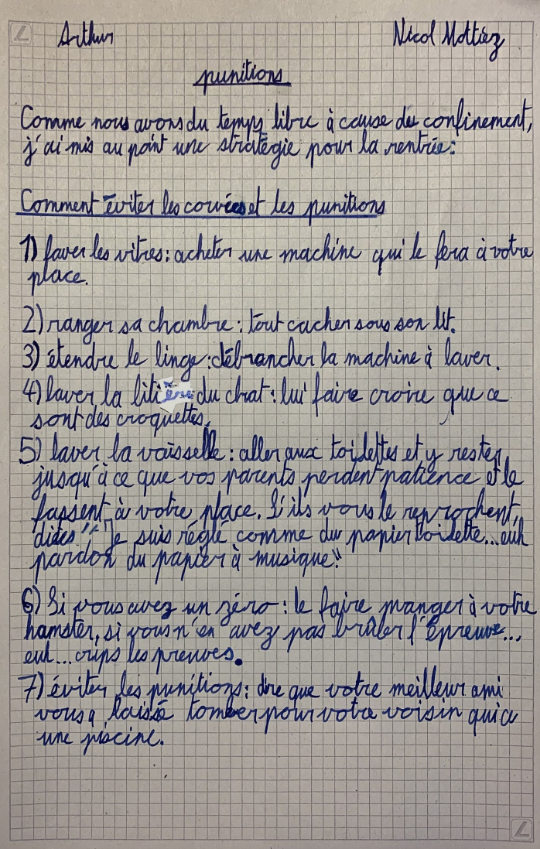 Arthur Nicol Mottiez
punitions
Comme nous avons du temps libre à cause du confinement,
j'ai mis au point une stratégie pour la rentrée:
Comment éviter les corvées et les punitions
1) laver les vitres: acheter une machine qui le fera à votre
place.
2) ranger sa chambre: tout cacher sous son lit.
3) étendre le linge: débrancher la machine à laver.
4) laver la litière du chat: lui faire croire que ce
sont des croquettes.
5) laver la vaisselle: aller aux toidettes et y rester
jusqu'à ce que vos parents perdent patience et le
fassent à votre place. S'ils vous le reprochent,
dites: "Je suis réglé comme du papier toidette...euh
pardon du papier à musique!"
6) Si vous avez un zéro: le faire manger à votre
hamster, si vous n'en avez pas brûler l'épreuve...
euh... oups les preuves.
7) éviter les punitions: dire que votre meilleur ami
vous a laissé tomber pour votre voisin qui a
une piscine.